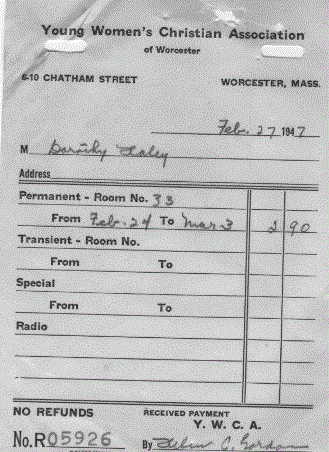 Young Women's Christian Association
of Worcester
6-10 CHATHAM STREET WORCESTER, MASS.
Feb. 27 1947
M Dorothy Foley
Address
Permanent - Room No. 33
From Feb. 24 To Mar 3 2 90
Transient - Room No.
From To
Special
From To
Radio
NO REFUNDS RECEIVED PAYMENT
Y. W. C. A.
No. R05926 By C. Gordon